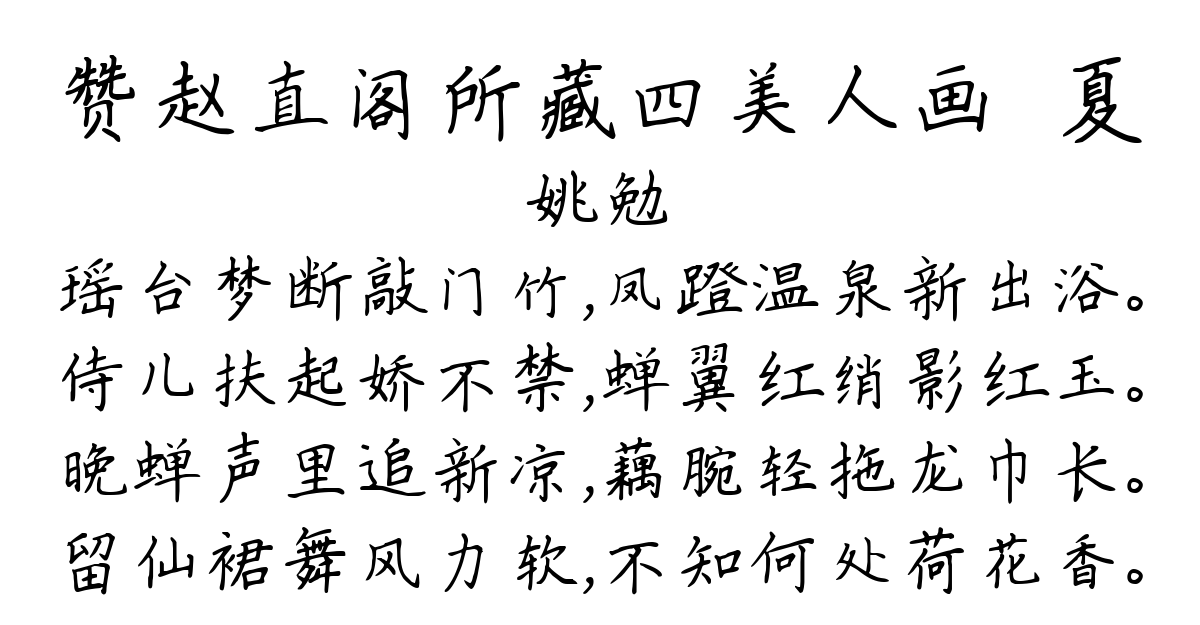 赞赵直阁所藏四美人画 夏
姚勉
瑶台梦断敲门竹,凤蹬温泉新出浴。
侍儿扶起娇不禁,蝉翼红绡影红玉。
晚蝉声里追新凉,藕腕轻拖龙巾长。
留仙裙舞风力软,不知何处荷花香。